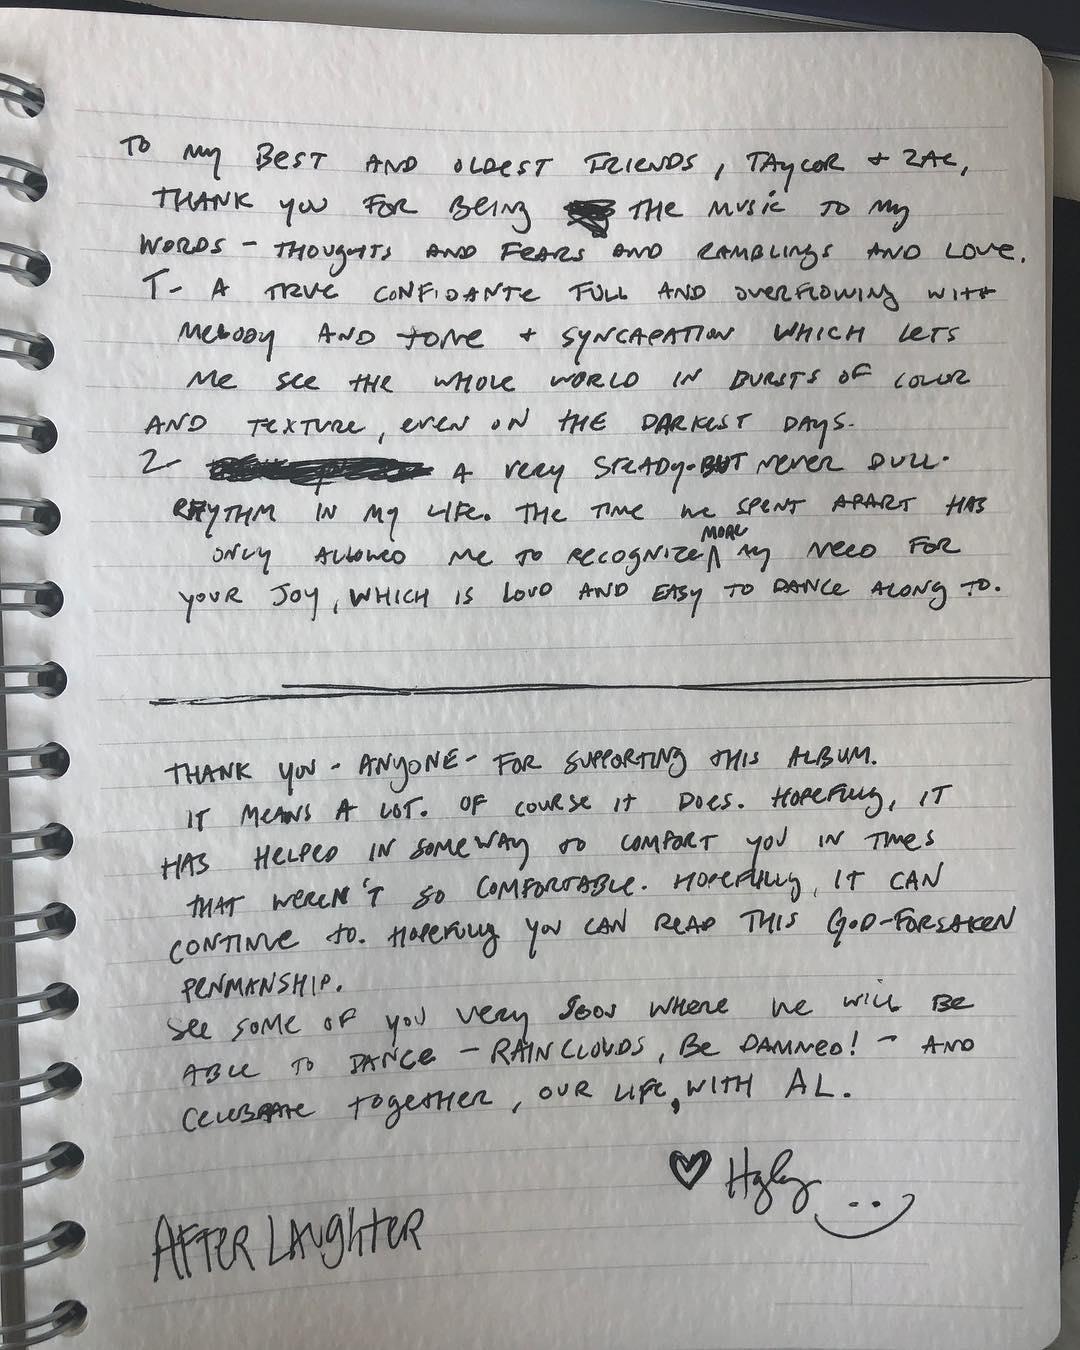 TO MY BEST AND OLDEST FRIENDS, TAYLOR + ZAC,
THANK YOU FOR BEING THE MUSIC TO MY
WORDS - THOUGHTS AND FEARS AND RAMBLINGS AND LOVE.
T- A TRUE CONFIDANTE FULL AND OVERFLOWING WITH
MELODY AND TONE + SYNCAPATION WHICH LETS
ME SEE THE WHOLE WORLD IN BURSTS OF COLOR
AND TEXTURE, EVEN ON THE DARKEST DAYS.
Z- A VERY STEADY-BUT NEVER DULL-
RHYTHM IN MY LIFE. THE TIME WE SPENT APART HAS
MORE
ONLY ALLOWED ME TO RECOGNIZE ^ MY NEED FOR
YOUR JOY, WHICH IS LOUD AND EASY TO DANCE ALONG TO.
THANK YOU - ANYONE - FOR SUPPORTING THIS ALBUM.
IT MEANS A LOT. OF COURSE IT DOES. HOPEFULLY, IT
HAS HELPED IN SOMEWAY TO COMFORT YOU IN TIMES
THAT WEREN'T SO COMFORTABLE. HOPEFULLY, IT CAN
CONTINUE TO. HOPEFULLY YOU CAN READ THIS GOD-FORSAKEN
PENMANSHIP.
SEE SOME OF YOU VERY SOON WHERE WE WILL BE
ABLE TO DANCE - RAIN CLOUDS, BE DAMNED! - AND
CELEBRATE TOGETHER, OUR LIFE, WITH AL.
♥ Hayley
AFTER LAUGHTER